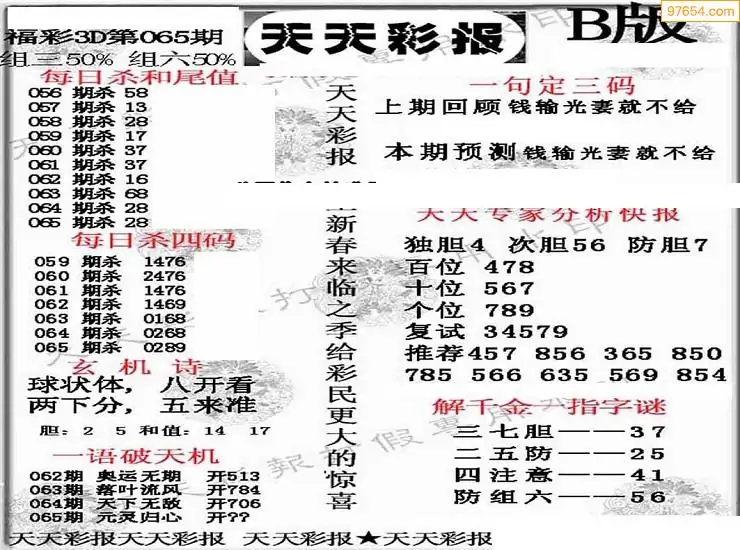 97654.com
福彩3D第065期
天天彩报
B版
组三50% 组六50%
每日杀和尾值
056 期杀 58
057 期杀 13
058 期杀 28
059 期杀 17
060 期杀 37
061 期杀 37
062 期杀 16
063 期杀 68
064 期杀 28
065 期杀 28
每日杀四码
059 期杀 1476
060 期杀 2476
061 期杀 1476
062 期杀 1469
063 期杀 0168
064 期杀 0268
065 期杀 0289
玄机诗
球状体, 八开看
两下分, 五来准
胆: 2 5 和值: 14 17
一语破天机
062期 奥运无期 开513
063期 落叶流风 开784
064期 天下无敌 开706
065期 元灵归心 开??
天天彩报
新春来临之季给彩民更大的惊喜
一句定三码
上期回顾 钱输光妻就不给
本期预测 钱输光妻就不给
天天专家分析快报
独胆4 次胆56 防胆7
百位 478
十位 567
个位 789
复试 34579
推荐457 856 365 850
785 566 635 569 854
解千金一指字谜
三七胆——37
二五防——25
四注意——41
防组六——56
天天彩报天天彩报 天天彩报★天天彩报